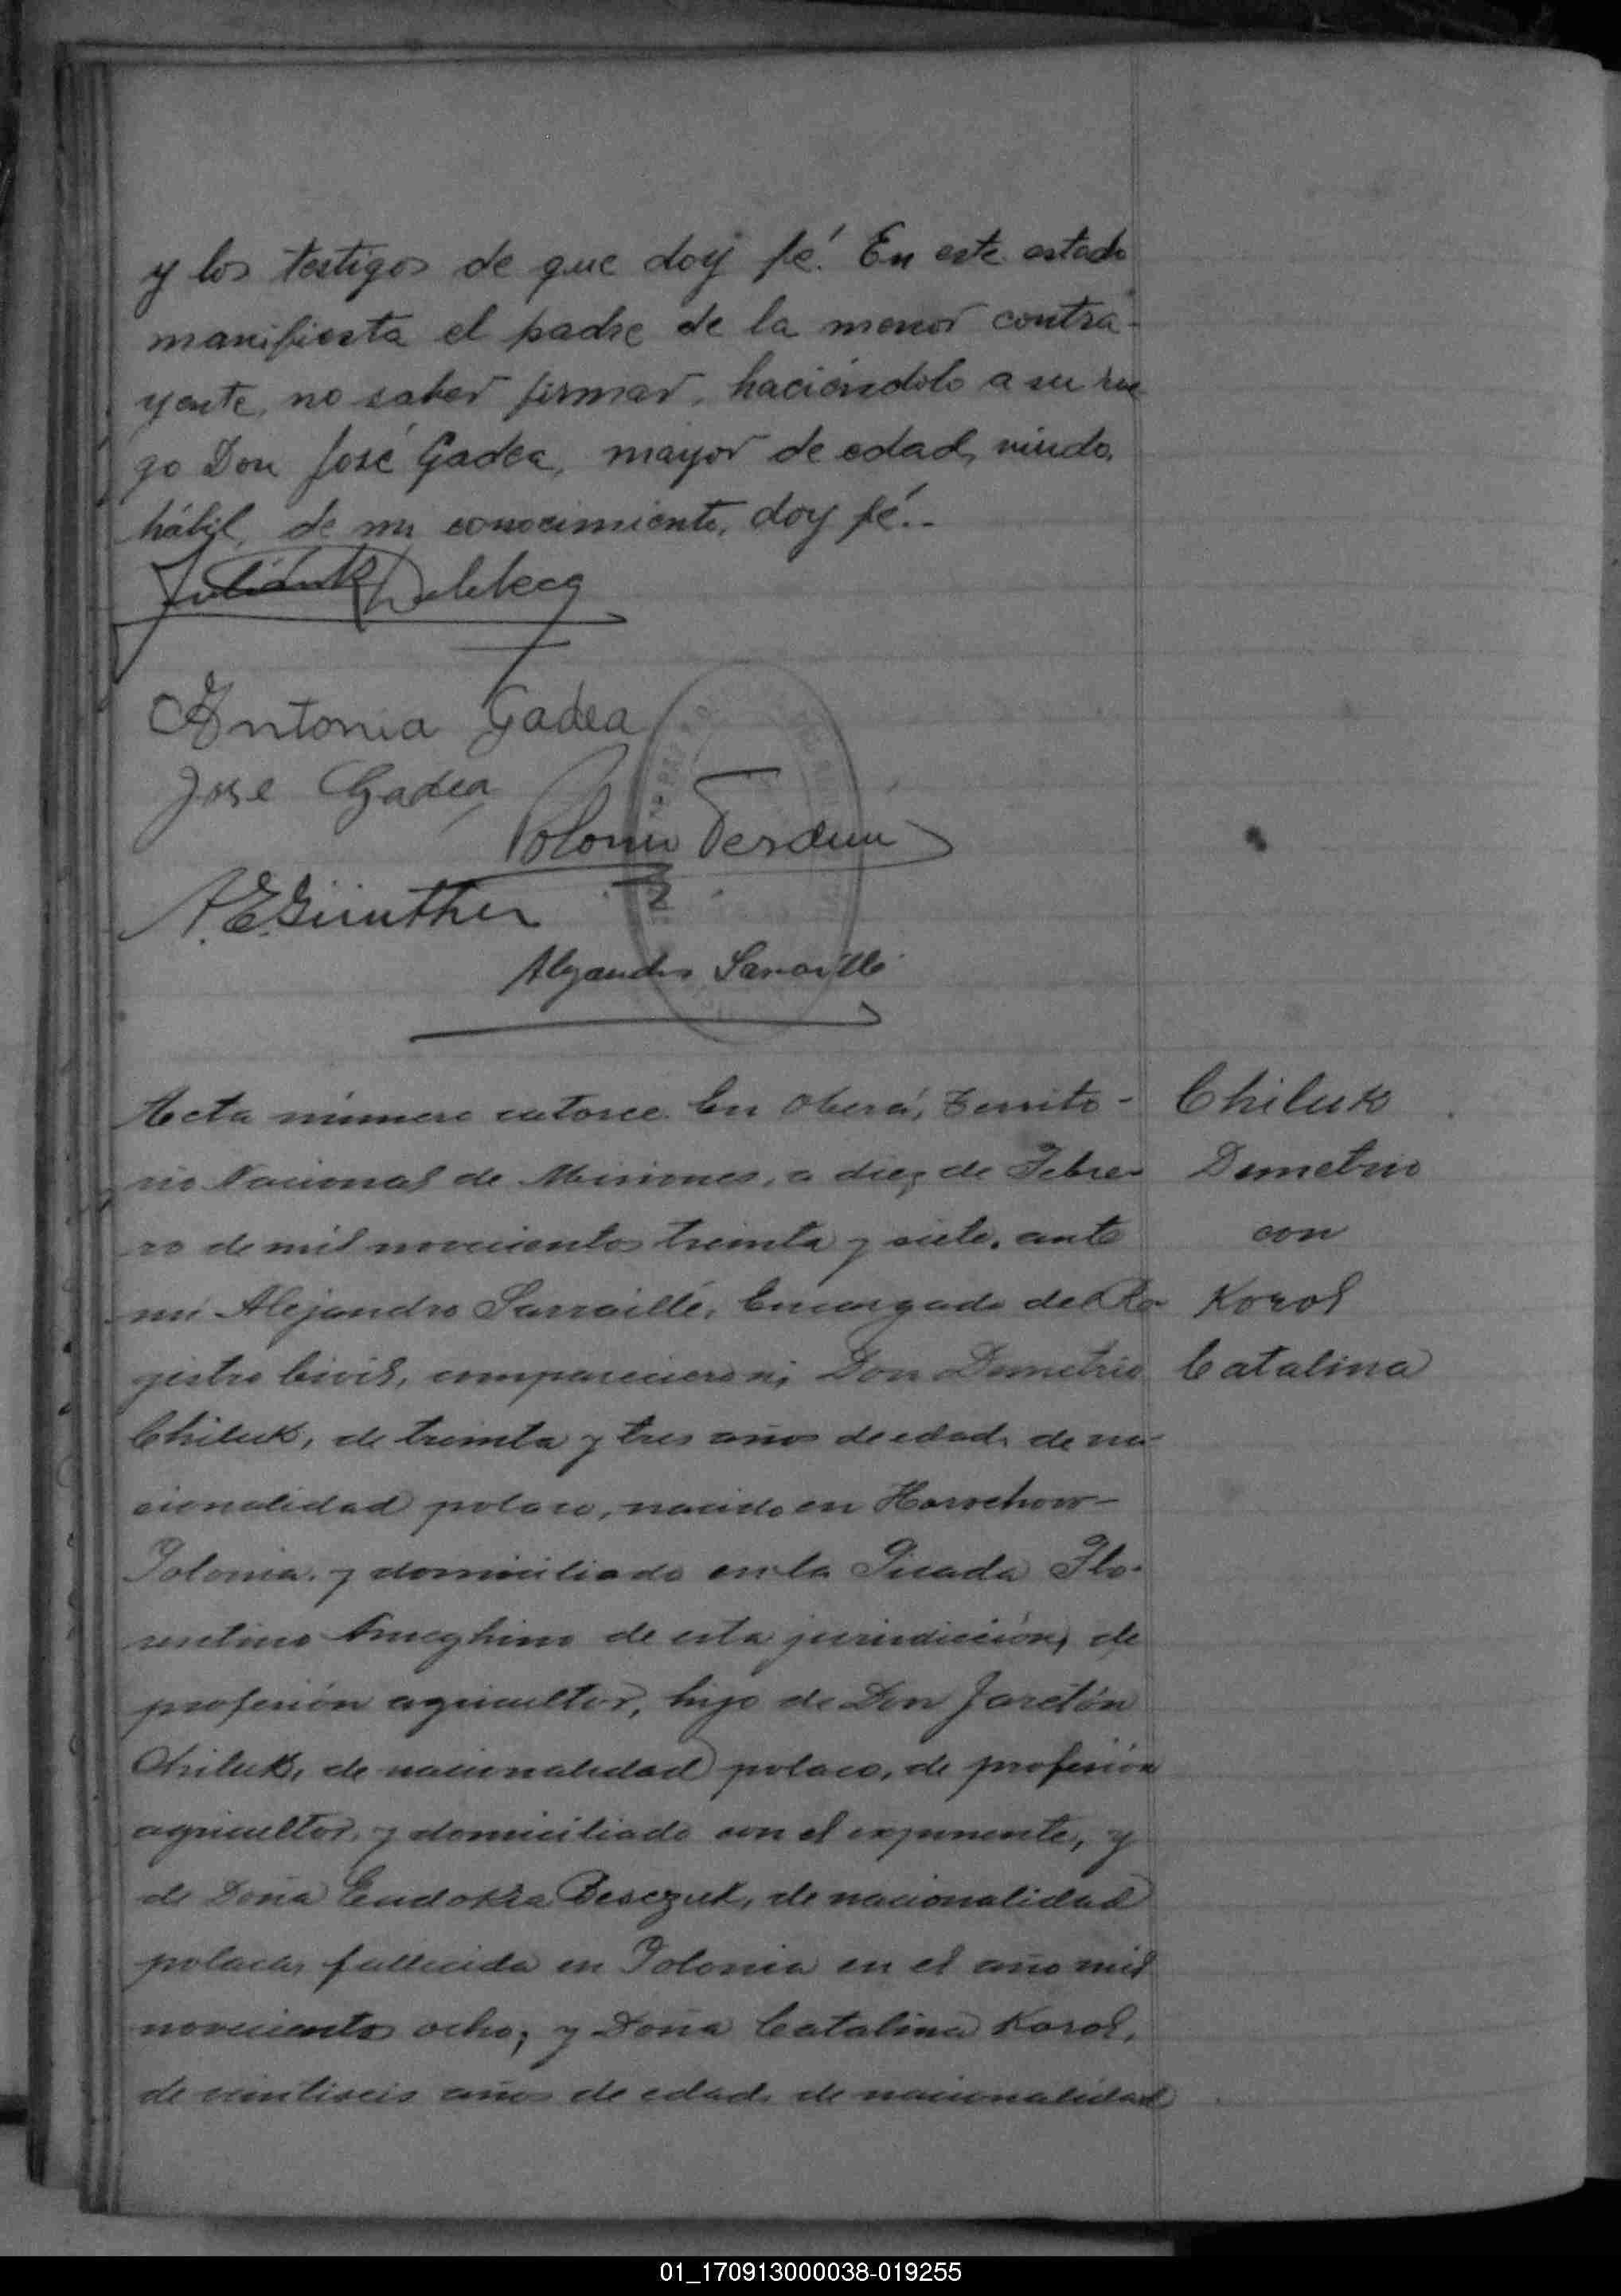 y los testigos de que doy fé. En este estado
manifiesta el padre de la menor contra-
yente, no saber firmar, haciéndolo a su rue
go Don José Gadea, mayor de edad, viudo,
hábil, de mi conocimiento, doy fé.-
Antonia Gadea
Jose Gadea
Polonio Verdun
A.E.Günther
Alejandro Sarraillé
Acta número catorce. En Oberá, Territo-
rio Nacional de Misiones, a diez de Febre-
ro de mil novecientos treinta y siete, ante
mi Alejandro Sarraillé, Encargado del Re-
gistro Civil, comparecieron; Don Demetrio
Chiluk, de treinta y tres años de edad, de na-
cionalidad polaco, nacido en Horochow-
Polonia, y domiciliado en la Picada Flo-
rentino Ameghino de esta jurisdicción, de
profesión agricultor, hijo de Don Jaretón
Chiluk, de nacionalidad polaco, de profesión
agricultor, y domiciliado con el exponente, y
de Doña Eudokia Besczuk, de nacionalidad
polaca, fallecida en Polonia en el año mil
novecientos ocho; y Doña Catalina Korol,
de veintiseis años de edad, de nacionalidad
Chiluk
Demetrio
con
Korol
Catalina
01_170913000038-019255